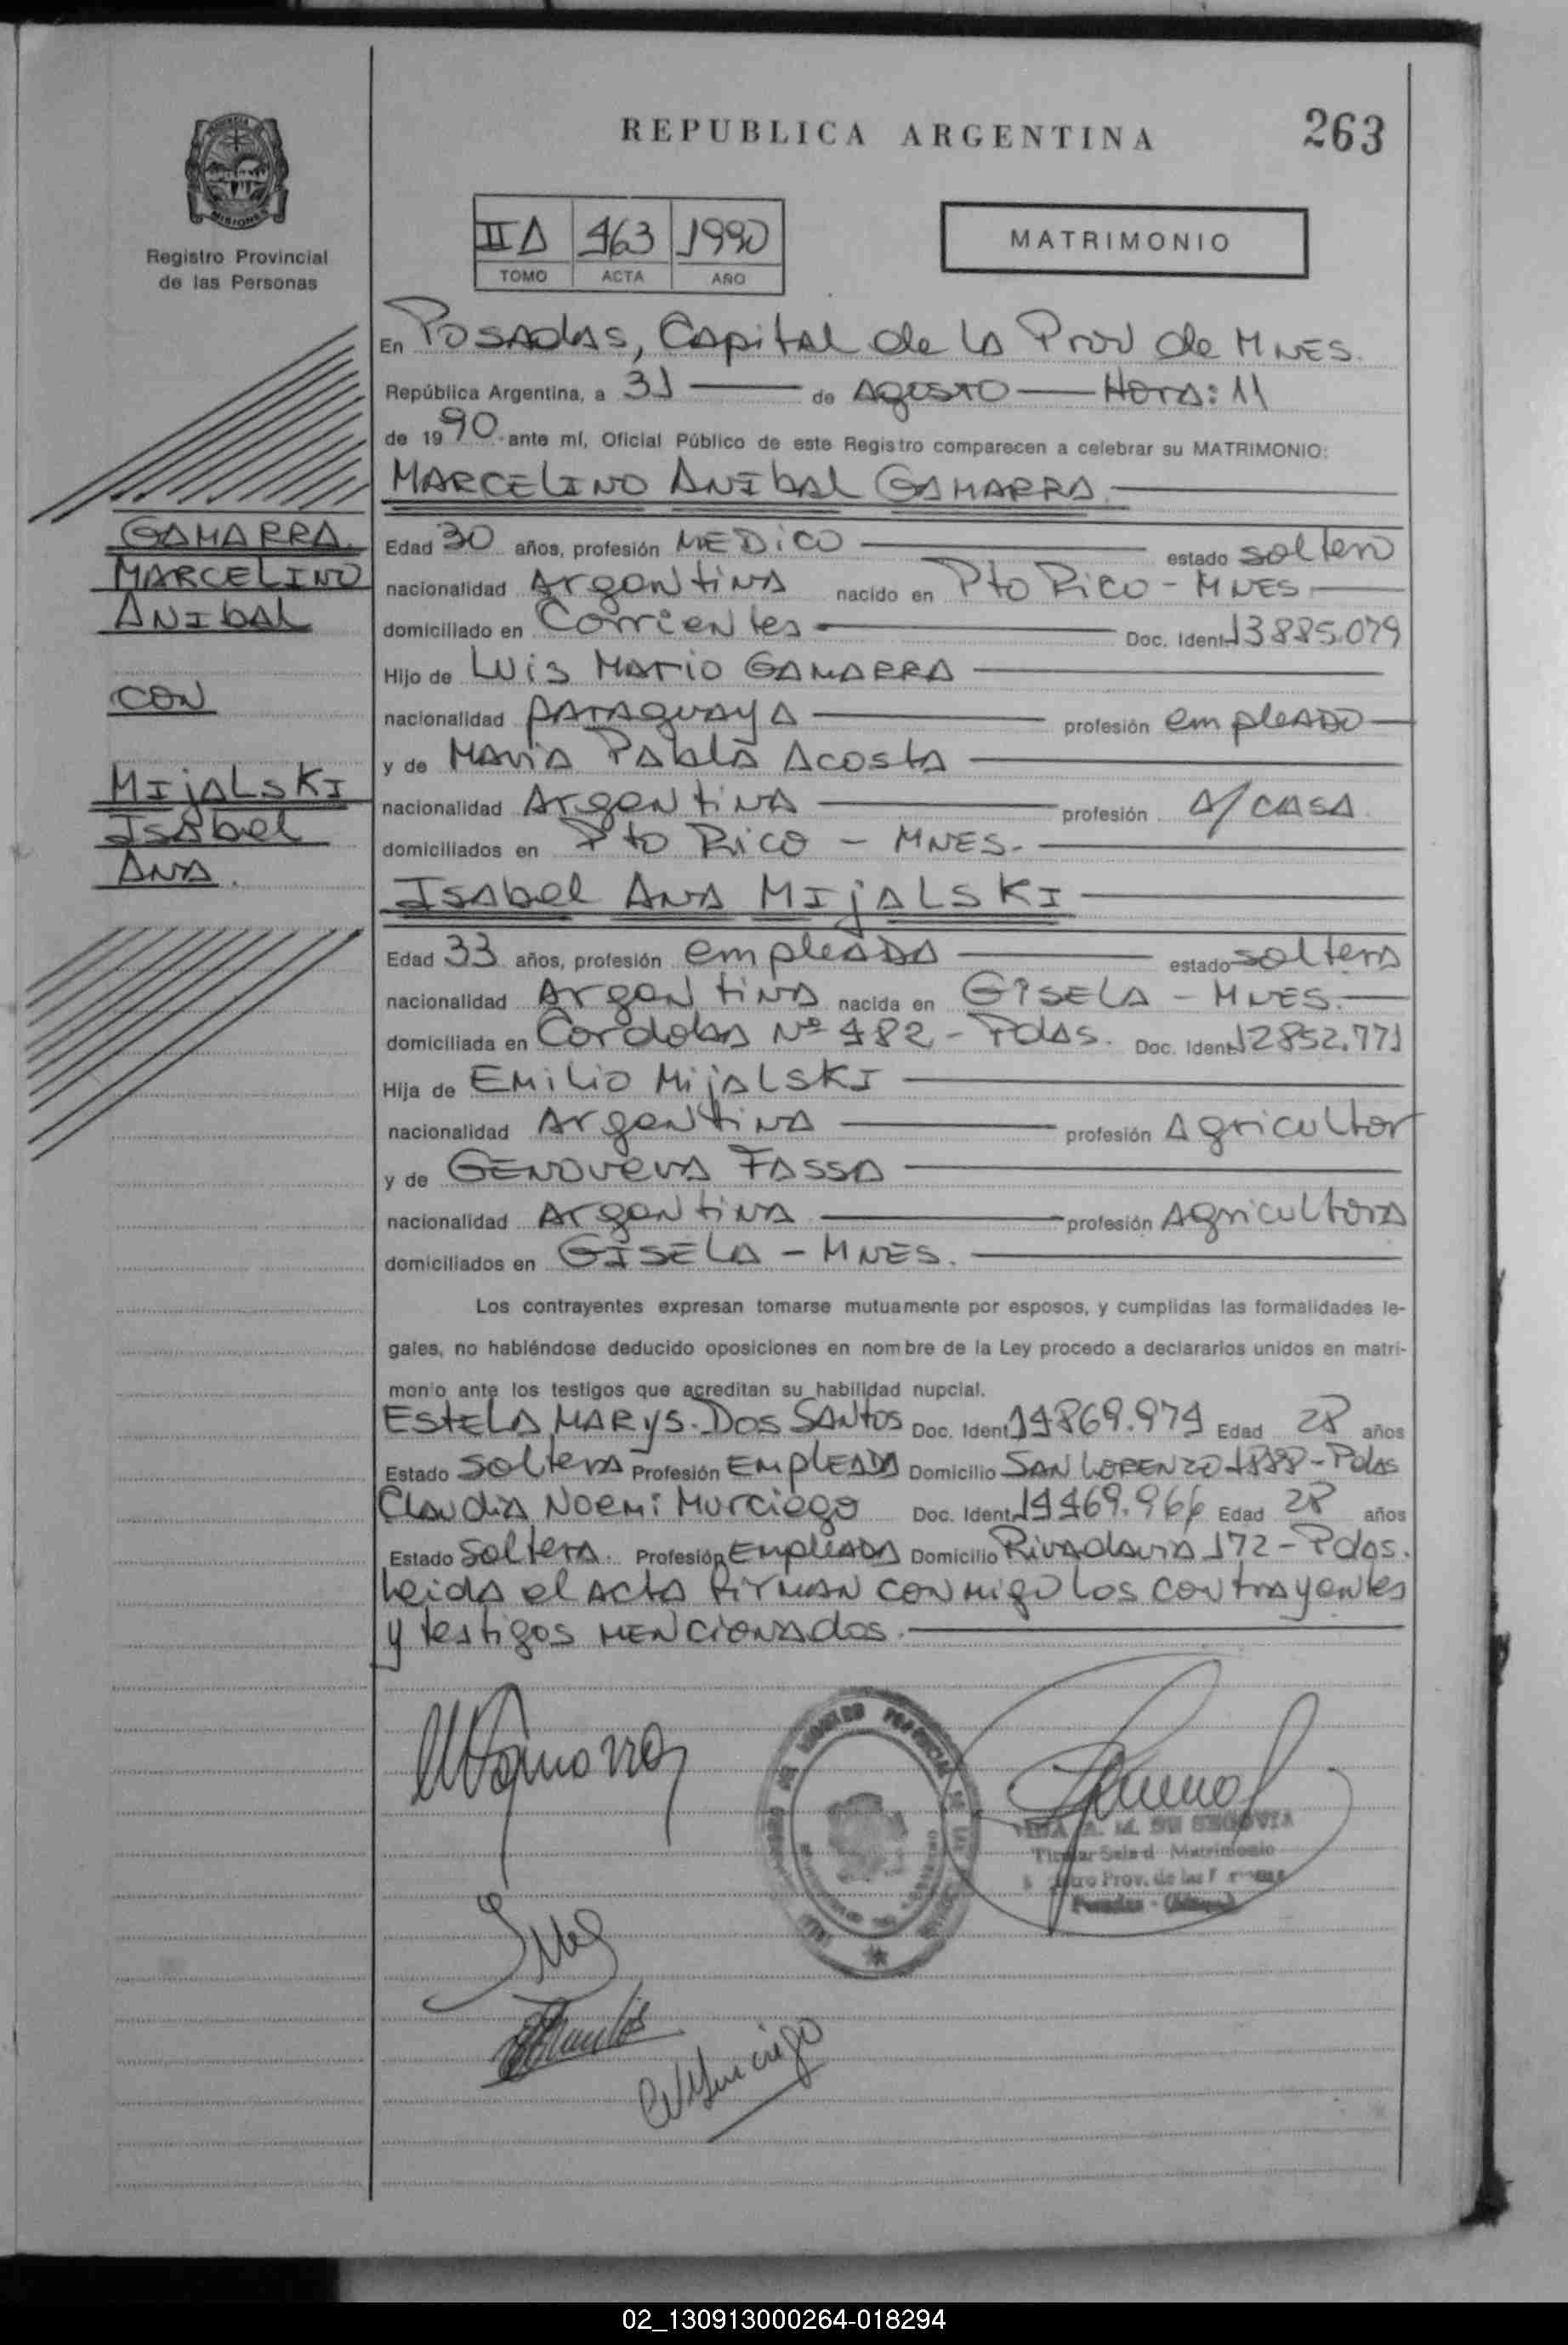 REPUBLICA ARGENTINA
263
MISIONES
Registro Provincial
de las Personas
II A 463 1990
TOMO ACTA AÑO
MATRIMONIO
En Posadas, Capital de la Prov de Mnes.
República Argentina, a 31 de Agosto Hora: 11
de 1990 ante mí, Oficial Público de este Registro comparecen a celebrar su MATRIMONIO:
MARCELINO ANIBAL GAMARRA.
Edad 30 años, profesión MEDICO estado soltero
nacionalidad Argentina nacido en Pto Rico - MNES
domiciliado en Corrientes Doc. Ident. 13885.079
Hijo de Luis Mario GAMARRA
nacionalidad paraguaya profesión empleado
y de Maria Pabla Acosta
nacionalidad Argentina profesión A/CASA
domiciliados en Pto Rico - MNES.
Isabel Ana MIjALSKI
Edad 33 años, profesión empleada estado soltera
nacionalidad Argentina nacida en GISELA - MNES.
domiciliada en Cordoba Nº 482 - Pdas. Doc. Ident. 12852.771
Hija de Emilio MijalSKI
nacionalidad Argentina profesión Agricultor
y de GENOVEVA FASSA
nacionalidad Argentina profesión Agricultora
domiciliados en GISELA - MNES.
Los contrayentes expresan tomarse mutuamente por esposos, y cumplidas las formalidades le-
gales, no habiéndose deducido oposiciones en nombre de la Ley procedo a declararlos unidos en matri-
monio ante los testigos que acreditan su habilidad nupcial.
ESTELA MARYS DOS SANTOS Doc. Ident. 14869.974 Edad 28 años
Estado Soltera Profesión EMPLEADA Domicilio SAN LORENZO 1888 - Pdas
Claudia Noemi Murciego Doc. Ident. 14469.966 Edad 28 años
Estado Soltera. Profesión Empleada Domicilio Rivadavia 172 - Pdas.
Leida el acta firman conmigo los contrayentes
y testigos mencionados.
GAMARRA
MARCELINO
ANIBAL
CON
MIjALSKI
Isabel
Ana.
A. M. DE SEGOVIA
Titular Sala d Matrimonio
Prov. de las
Posadas
02_130913000264-018294